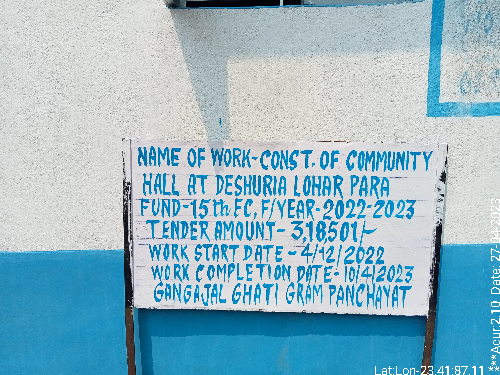 NAME OF WORK-CONST. OF COMMUNITY
HALL AT DESHURIA LOHAR PARA
FUND-15th FC, F/YEAR-2022-2023
TENDER AMOUNT- 3,18,501/-
WORK START DATE-4/12/2022
WORK COMPLETION DATE-10/4/2023
GANGAJAL GHATI GRAM PANCHAYAT
Lat:Lon-23.41:87.11